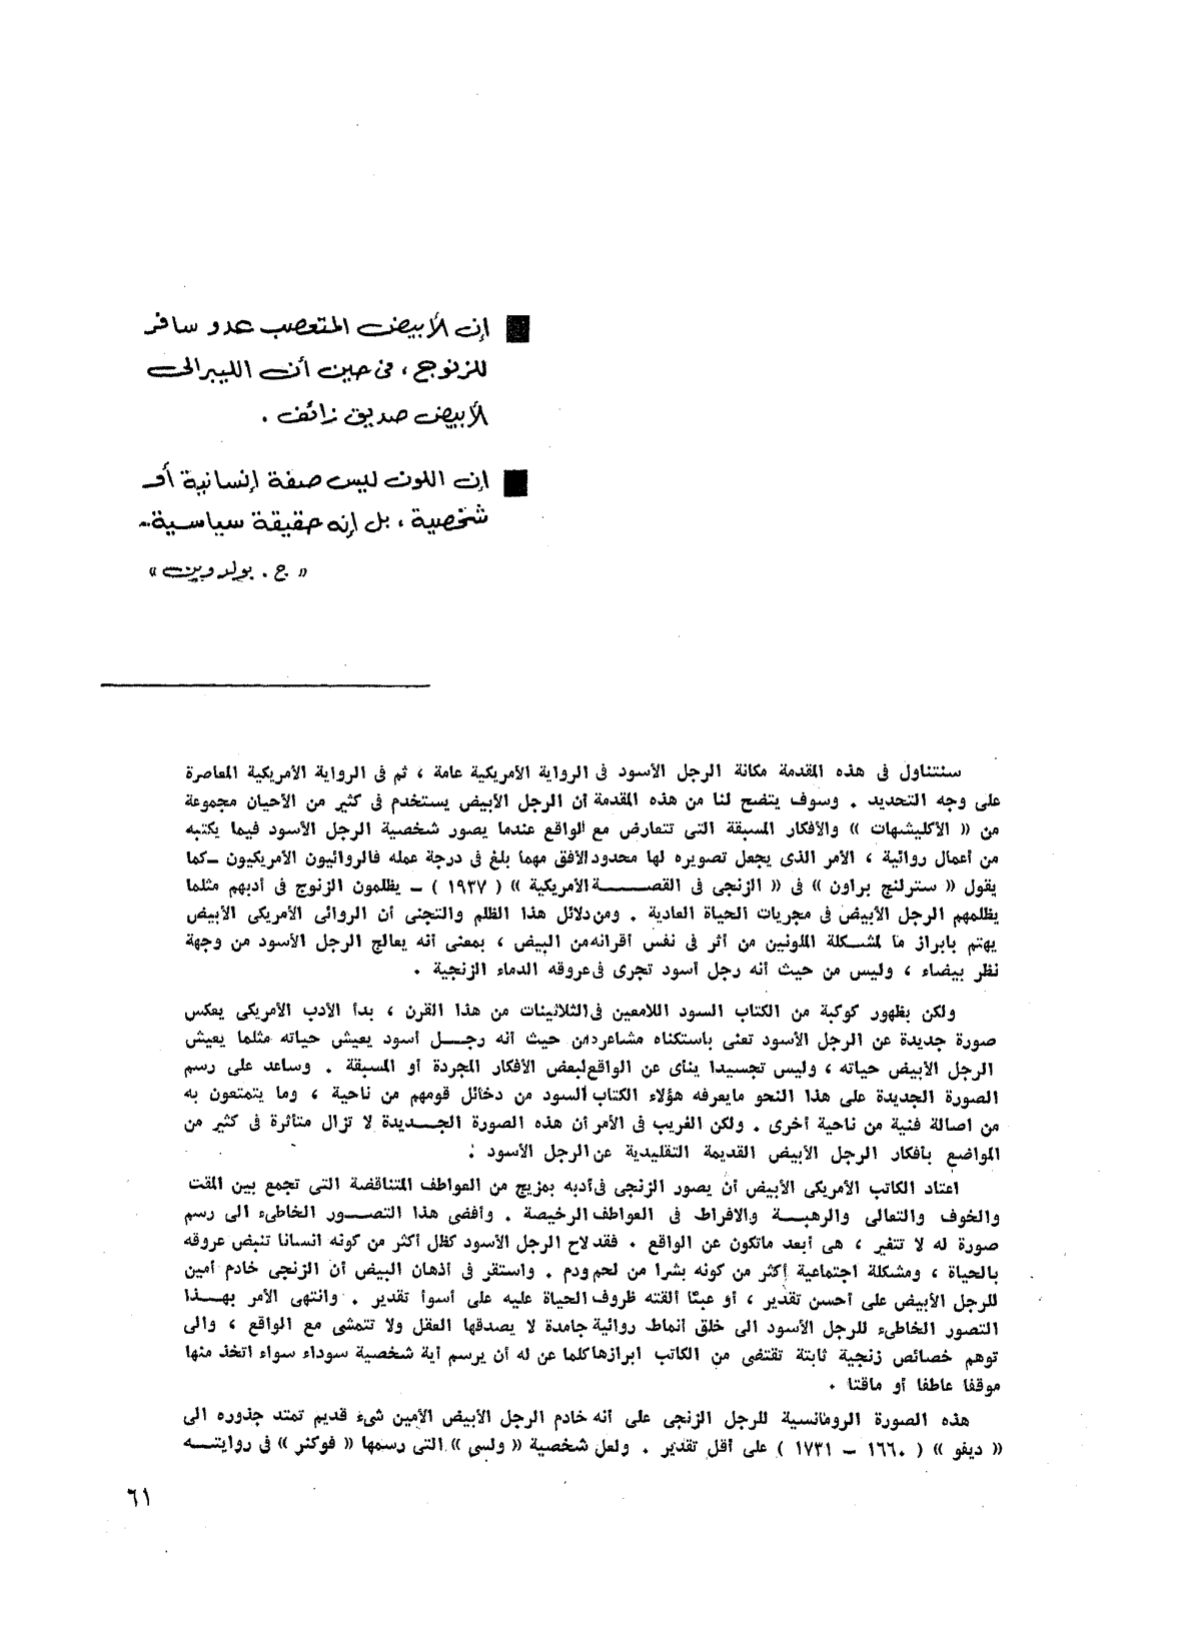 ■ إن الأبيض المتعصب عدو سافر
للزنوج ، فى حين أن الليبرالى
الأبيض صديق زائف .
■ إن اللون ليس صفة إنسانية أو
شخصية ، بل إنه حقيقة سياسية..
« ج . بولدوين »
سنتناول فى هذه المقدمة مكانة الرجل الأسود فى الرواية الأمريكية عامة ، ثم فى الرواية الأمريكية المعاصرة
على وجه التحديد . وسوف يتضح لنا من هذه المقدمة أن الرجل الأبيض يستخدم فى كثير من الأحيان مجموعة
من « الأكليشهات » والأفكار المسبقة التى تتعارض مع الواقع عندما يصور شخصية الرجل الأسود فيما يكتبه
من أعمال روائية ، الأمر الذى يجعل تصويره لها محدود الأفق مهما بلغ فى درجة عمله فالروائيون الأمريكيون –كما
يقول « سترلنج براون » فى « الزنجى فى القصة الأمريكية » ( ١٩٣٧ ) – يظلمون الزنوج فى أدبهم مثلما
يظلمهم الرجل الأبيض فى مجريات الحياة العادية . ومن دلائل هذا الظلم والتجنى أن الروائى الأمريكى الأبيض
يهتم بابراز ما لمشكلة الملونين من أثر فى نفس أقرانه من البيض ، بمعنى أنه يعالج الرجل الأسود من وجهة
نظر بيضاء ، وليس من حيث أنه رجل أسود تجرى فى عروقه الدماء الزنجية .
ولكن بظهور كوكبة من الكتاب السود اللامعين فى الثلاثينات من هذا القرن ، بدأ الأدب الأمريكى يعكس
صورة جديدة عن الرجل الأسود تعنى باستكناه مشاعره من حيث أنه رجل أسود يعيش حياته مثلما يعيش
الرجل الأبيض حياته ، وليس تجسيدا ينأى عن الواقع لبعض الأفكار المجردة أو المسبقة . وساعد على رسم
الصورة الجديدة على هذا النحو مايعرفه هؤلاء الكتاب السود من دخائل قومهم من ناحية ، وما يتمتعون به
من اصالة فنية من ناحية أخرى . ولكن الغريب فى الأمر أن هذه الصورة الجديدة لا تزال متأثرة فى كثير من
المواضع بأفكار الرجل الأبيض القديمة التقليدية عن الرجل الأسود .
اعتاد الكاتب الأمريكى الأبيض أن يصور الزنجى فى أدبه بمزيج من العواطف المتناقضة التى تجمع بين المقت
والخوف والتعالى والرهبة والافراط فى العواطف الرخيصة . وأفضى هذا التصور الخاطىء الى رسم
صورة له لا تتغير ، هى أبعد ماتكون عن الواقع . فقد لاح الرجل الأسود كظل أكثر من كونه انسانا تنبض عروقه
بالحياة ، ومشكلة اجتماعية أكثر من كونه بشرا من لحم ودم . واستقر فى أذهان البيض أن الزنجى خادم أمين
للرجل الأبيض على أحسن تقدير ، أو عبئا ألقته ظروف الحياة عليه على أسوأ تقدير . وانتهى الأمر بهذا
التصور الخاطىء للرجل الأسود الى خلق أنماط روائية جامدة لا يصدقها العقل ولا تتمشى مع الواقع ، والى
توهم خصائص زنجية ثابتة تقتضى من الكاتب ابرازها كلما عن له أن يرسم أية شخصية سوداء سواء اتخذ منها
موقفا عاطفا أو ماقتا .
هذه الصورة الرومانسية للرجل الزنجى على أنه خادم الرجل الأبيض الأمين شىء قديم تمتد جذوره الى
« ديفو » ( ١٦٦٠ – ١٧٣١ ) على أقل تقدير . ولعل شخصية « ولسى » التى رسمها « فوكنر » فى روايته
٦١